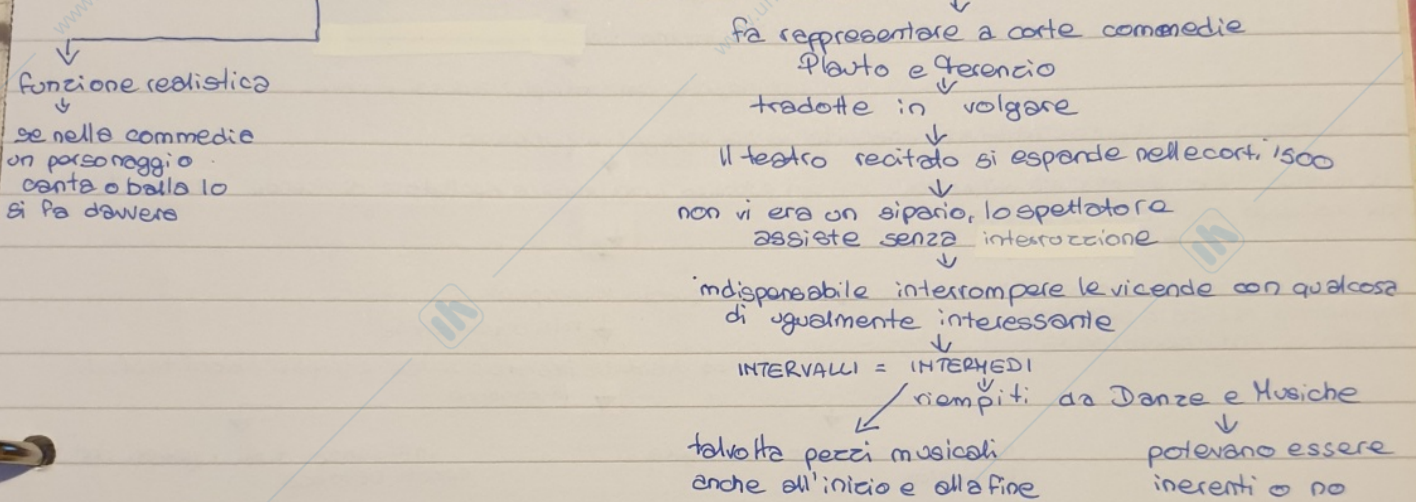 funzione realistica
se nella commedia
un personaggio
canta o balla lo
si fa davvero
fa rappresentare a corte commedie
Plauto e Terenzio
tradotte in volgare
Il teatro recitato si espande nelle corti '500
non vi era un sipario, lo spettatore
assiste senza interruzione
indispensabile interrompere le vicende con qualcosa
di ugualmente interessante
INTERVALLI = INTERMEDI
riempiti da Danze e Musiche
talvolta pezzi musicali
anche all'inizio e alla fine
potevano essere
inerenti o no